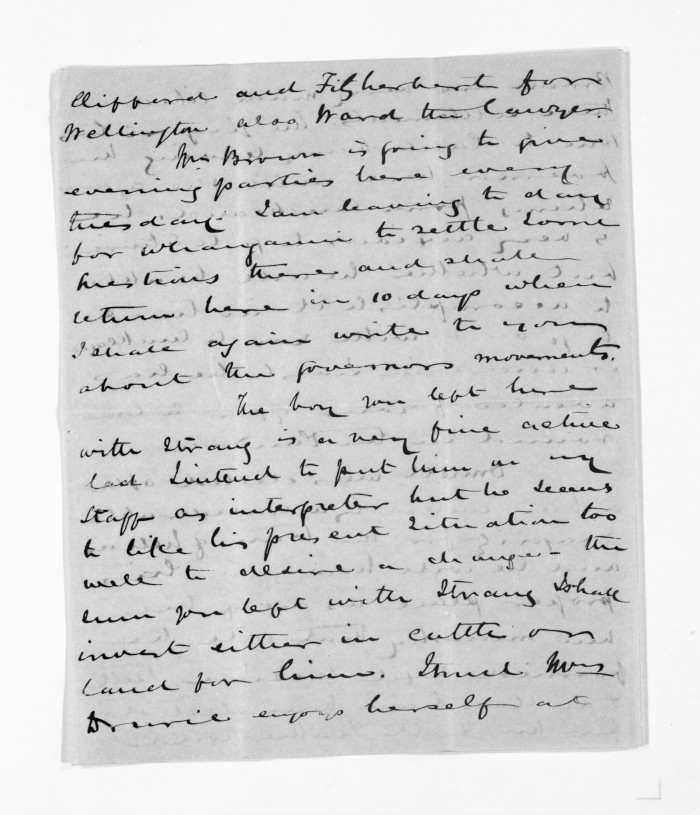 Clifford and Fitzherbert for
Wellington also Ward the Lawyer.
Mrs Brown is going to give
evening parties here every
tuesday. I am leaving to day
for Whanganui to settle some
questions there and shall
return here in 10 days when
I shall again write to you
about the governors movements.
The boy you left here
with Strang is a very fine active
lad I intend to put him on my
Staff as interpreter but he seems
to like his present situation too
well to desire a change - the
sum you left with Strang I shall
invest either in cattle or
land for him. I trust Mrs
Drurie enjoys herself at